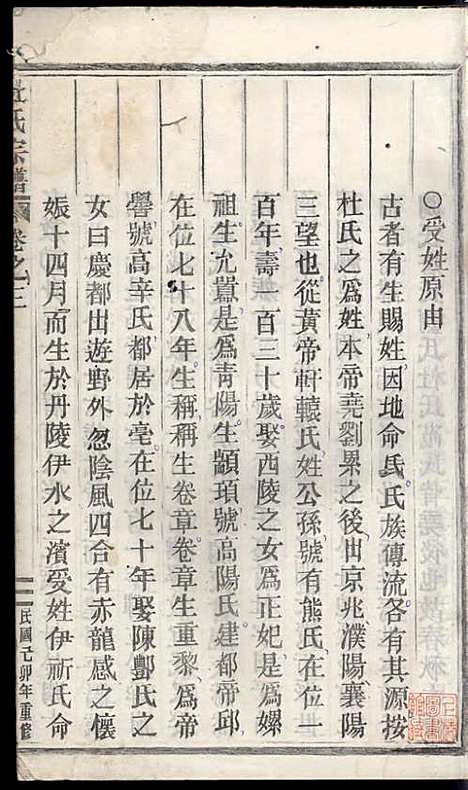 ○受姓原由
古者有生賜姓因地命氏氏族傳流各有其源按
杜氏之爲姓本帝堯劉累之後出京兆濮陽襄陽
三望也從黃帝軒轅氏姓公孫號有熊氏在位一
百年壽一百三十歲娶西陵之女爲正妃是爲嫘
祖生允囂是爲青陽生顓頊號高陽氏建都帝邱
在位七十八年生稱稱生卷章卷章生重黎爲帝
嚳號高辛氏都居於亳在位七十年娶陳酆氏之
女曰慶都出遊野外忽陰風四合有赤龍感之懷
娠十四月而生於丹陵伊水之濱受姓伊祈氏命
杜氏宗譜 卷之三
民國己卯年重修